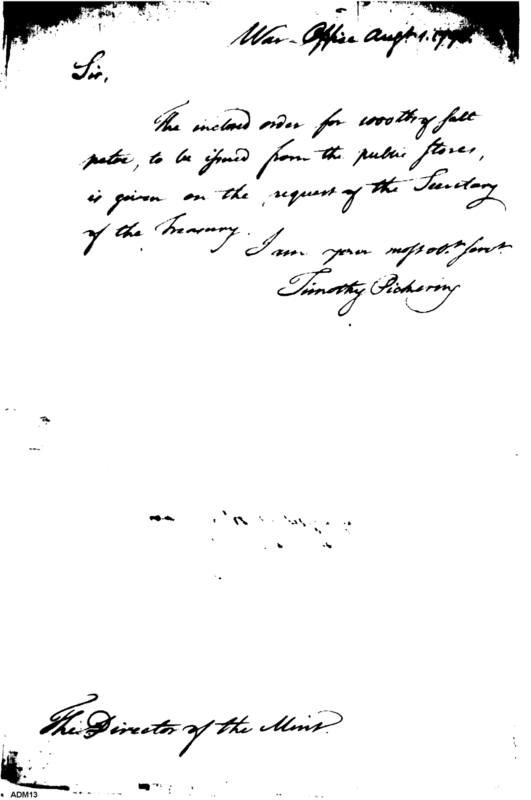 War-Office Augt. 1. 1795.
Sir,
The inclosed order for 1000 lbs of salt
petre, to be issued from the public stores,
is given on the request of the Secretary
of the Treasury.
I am your most obt. servt.
Timothy Pickering
The Director of the Mint.
ADM13